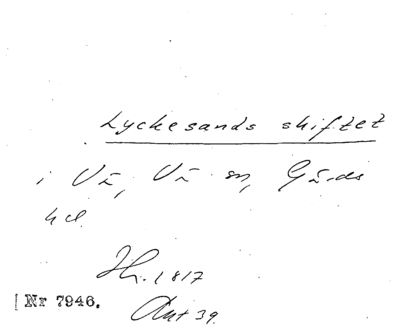 Lyckesands skiftet
i Vä, Vä sn, Gärds
hd.
Hr. 1817
Ant 39.
Nr 7946.